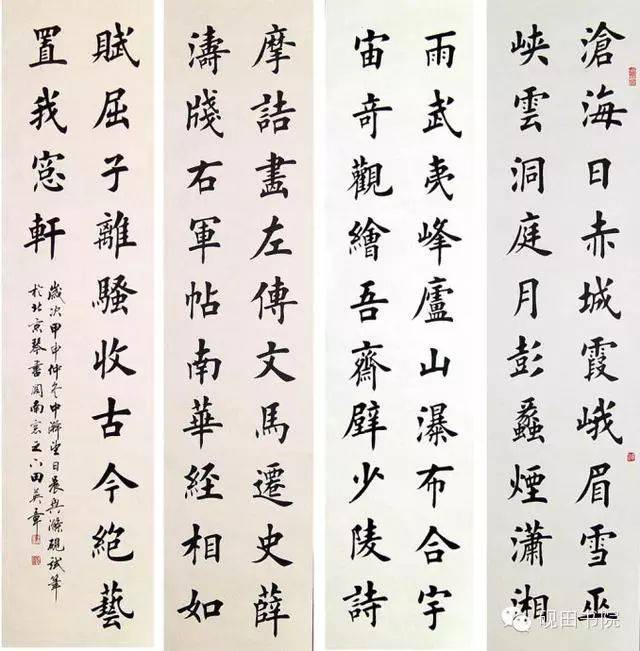 滄海日赤城霞峨眉雪巫
峽雲洞庭月彭蠡煙瀟湘
雨武夷峰廬山瀑布合宇
宙奇觀繪吾齋壁少陵詩
摩詰畫左傳文馬遷史薛
濤牋右軍帖南華經相如
賦屈子離騷收古今絶藝
置我窓軒
歲次甲申仲冬中澣望日晨興滌硯試筆
於北京琴書閣南窓之下田英章
砚田书院